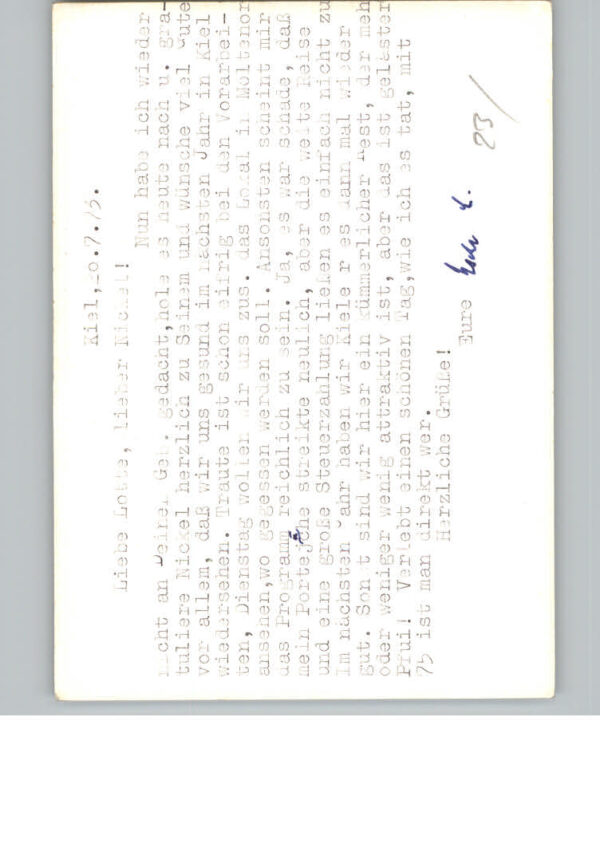 Kiel, 20.7.75.
Liebe Lotte, lieber Nickel!
Nun habe ich wieder
nicht an Deinen Geb. gedacht,hole es heute nach u. gra-
tuliere Nickel herzlich zu Seinem und wünsche viel Gute
vor allem, daß wir uns gesund im nächsten Jahr in Kiel
wiedersehen. Traute ist schon eifrig bei den Vorarbei-
ten, Dienstag wollen wir uns zus. das Lokal in Möltenor
ansehen,wo gegessen werden soll. Ansonsten scheint mir
das Programm reichlich zu sein. Ja, es war schade, daß
mein Porte ä che streikte neulich, aber die weite Reise
und eine große Steuerzahlung ließen es einfach nicht zu
Im nächsten Jahr haben wir Kiele r es dann mal wieder
gut. Sonst sind wir hier ein kümmerlicher Rest, der meh
oder weniger wenig attraktiv ist, aber das ist gelästert
Pfui! Verlebt einen schönen Tag,wie ich es tat, mit
75 ist man direkt wer.
Herzliche Grüße!
Eure
23/